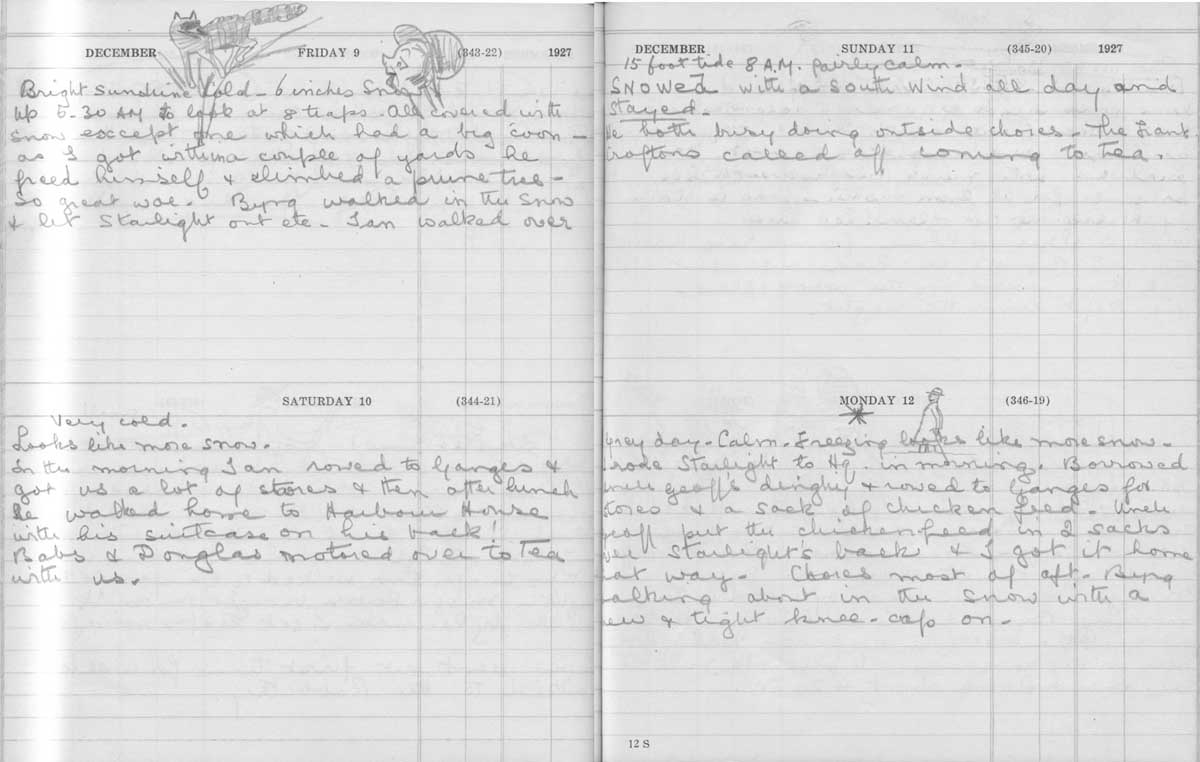 DECEMBER FRIDAY 9 (343-22) 1927
Bright Sunshine Cold - 6 inches Snow
Up 5-30 AM to look at 8 traps - All covered with
snow except one which had a big coon -
as I got within a couple of yards he
freed himself & climbed a prune tree -
So great woe. Byng walked in the snow
& let Starlight out etc - Ian walked over
SATURDAY 10 (344-21)
Very cold.
Looks like more snow.
In the morning Ian rowed to Ganges &
got us a lot of stores & then after lunch
he walked home to Harbour House
with his suitcase on his back!
Babs & Douglas motored over to Tea
with us.
DECEMBER SUNDAY 11 (345-20) 1927
15 foot tide 8 A.M. fairly calm -
SNOWED with a South Wind all day and
stayed.
We both busy doing outside chores - The Frank
Croftons called off coming to Tea.
MONDAY 12 (346-19)
Grey day - Calm - Freezing looks like more snow -
rode Starlight to Hq. in morning. Borrowed
Uncle Geoff's dinghy & rowed to Ganges for
stores & a sack of chicken feed. Uncle
Geoff put the chicken feed in 2 sacks
over Starlight's back & I got it home
that way - Chores most of aft. Byng
walking about in the snow with a
new & tight knee-cap on -
12 S